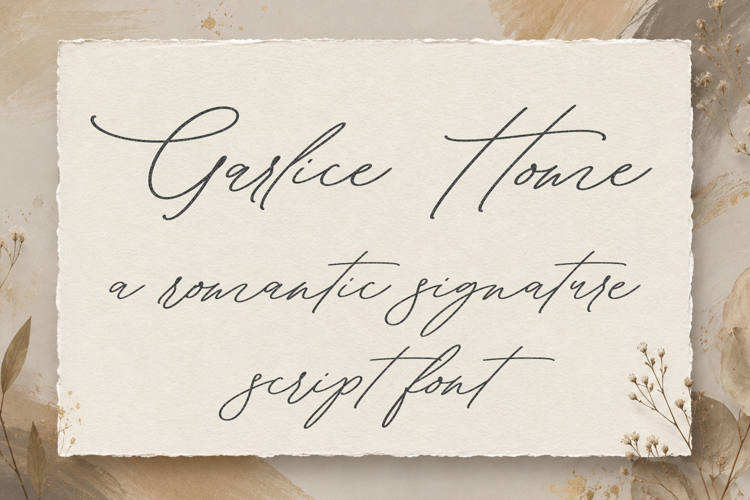 Garlice Home
a romantic signature
script font